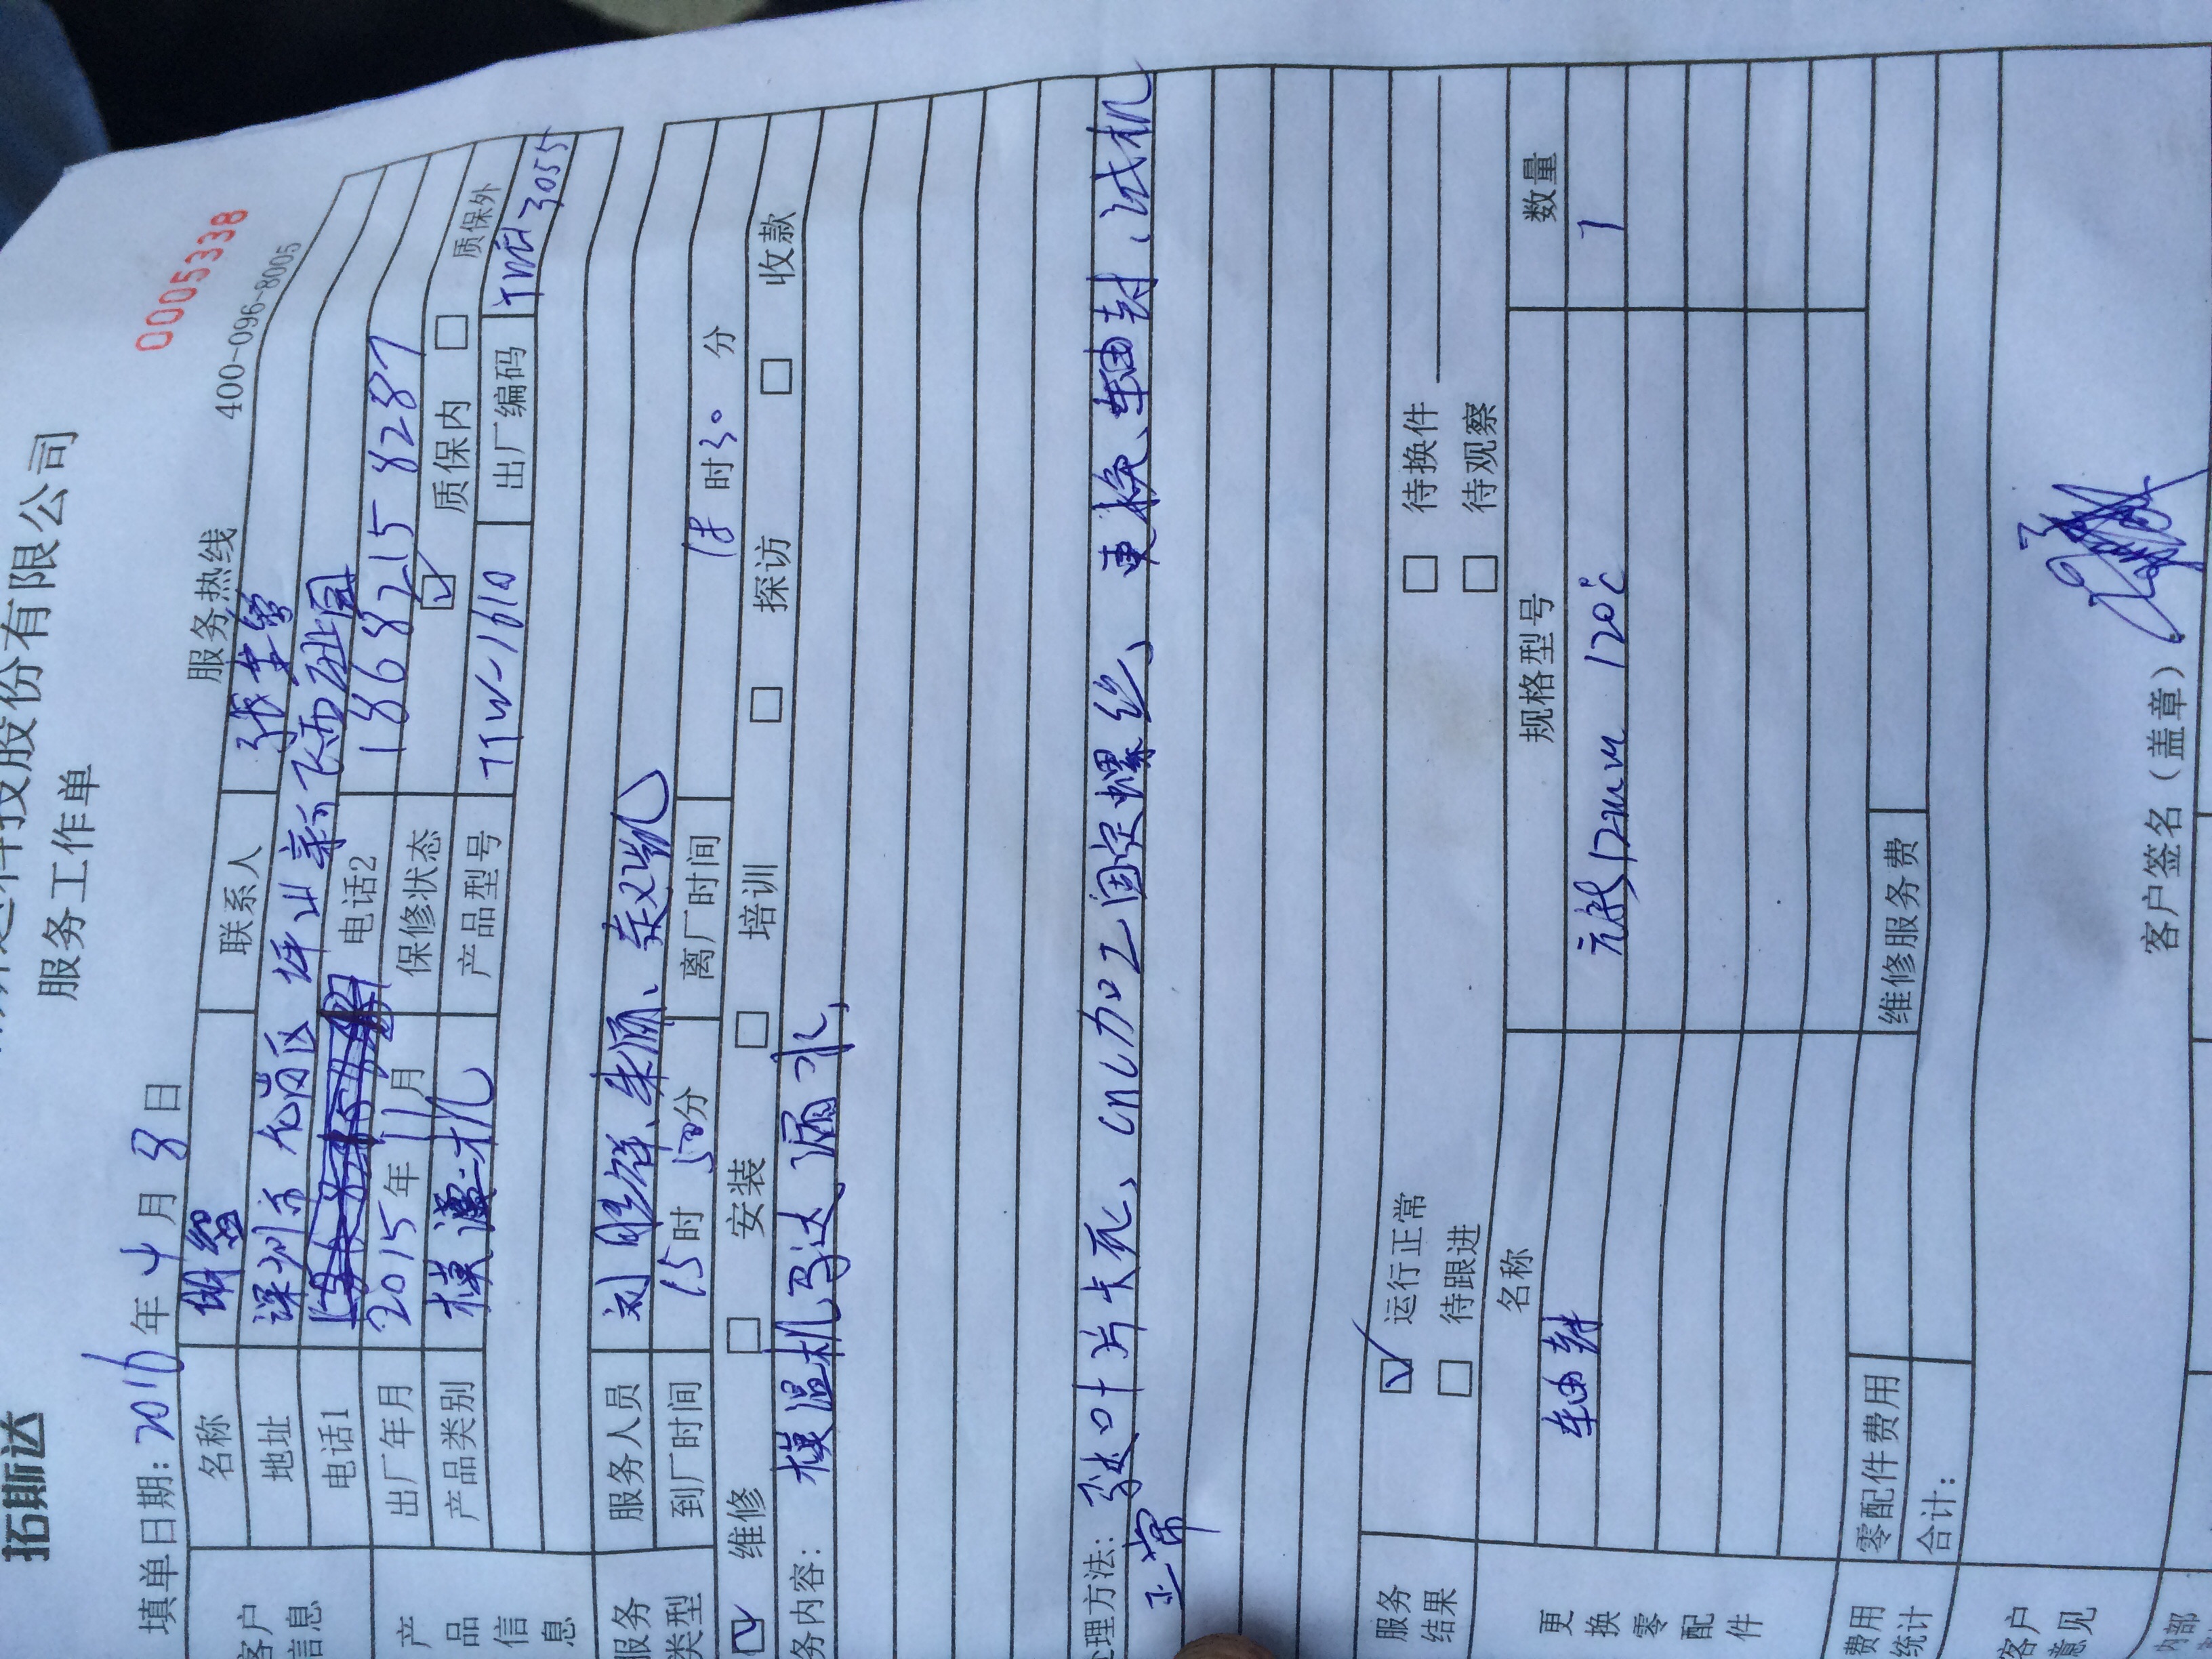 拓斯达
科技股份有限公司
服务工作单
0005338
填单日期: 2016年4月8日 服务热线 400-096-8005
客户信息
名称 联系人 张
地址 深圳市龙岗区坪山新
电话1 电话2 18682158287
产品信息
出厂年月 2015年11月 保修状态 ☑ 质保内 □ 质保外
产品类别 模温机 产品型号 TTW-1610 出厂编码
服务人员 刘
到厂时间 15时50分 离厂时间 18时30分
服务类型
☑ 维修 □ 安装 □ 培训 □ 探访 □ 收款
务内容: 模温机马达漏水,
理方法: 马达叶片卡死, CNC加工固定螺丝、更换轴封、试机
正常
服务结果
☑ 运行正常 □ 待换件
□ 待跟进 □ 待观察
更换零配件
名称 规格型号 数量
轴封 12mm 120℃ 1
费用统计
零配件费用 维修服务费
合计:
客户意见
客户签名(盖章)
内部